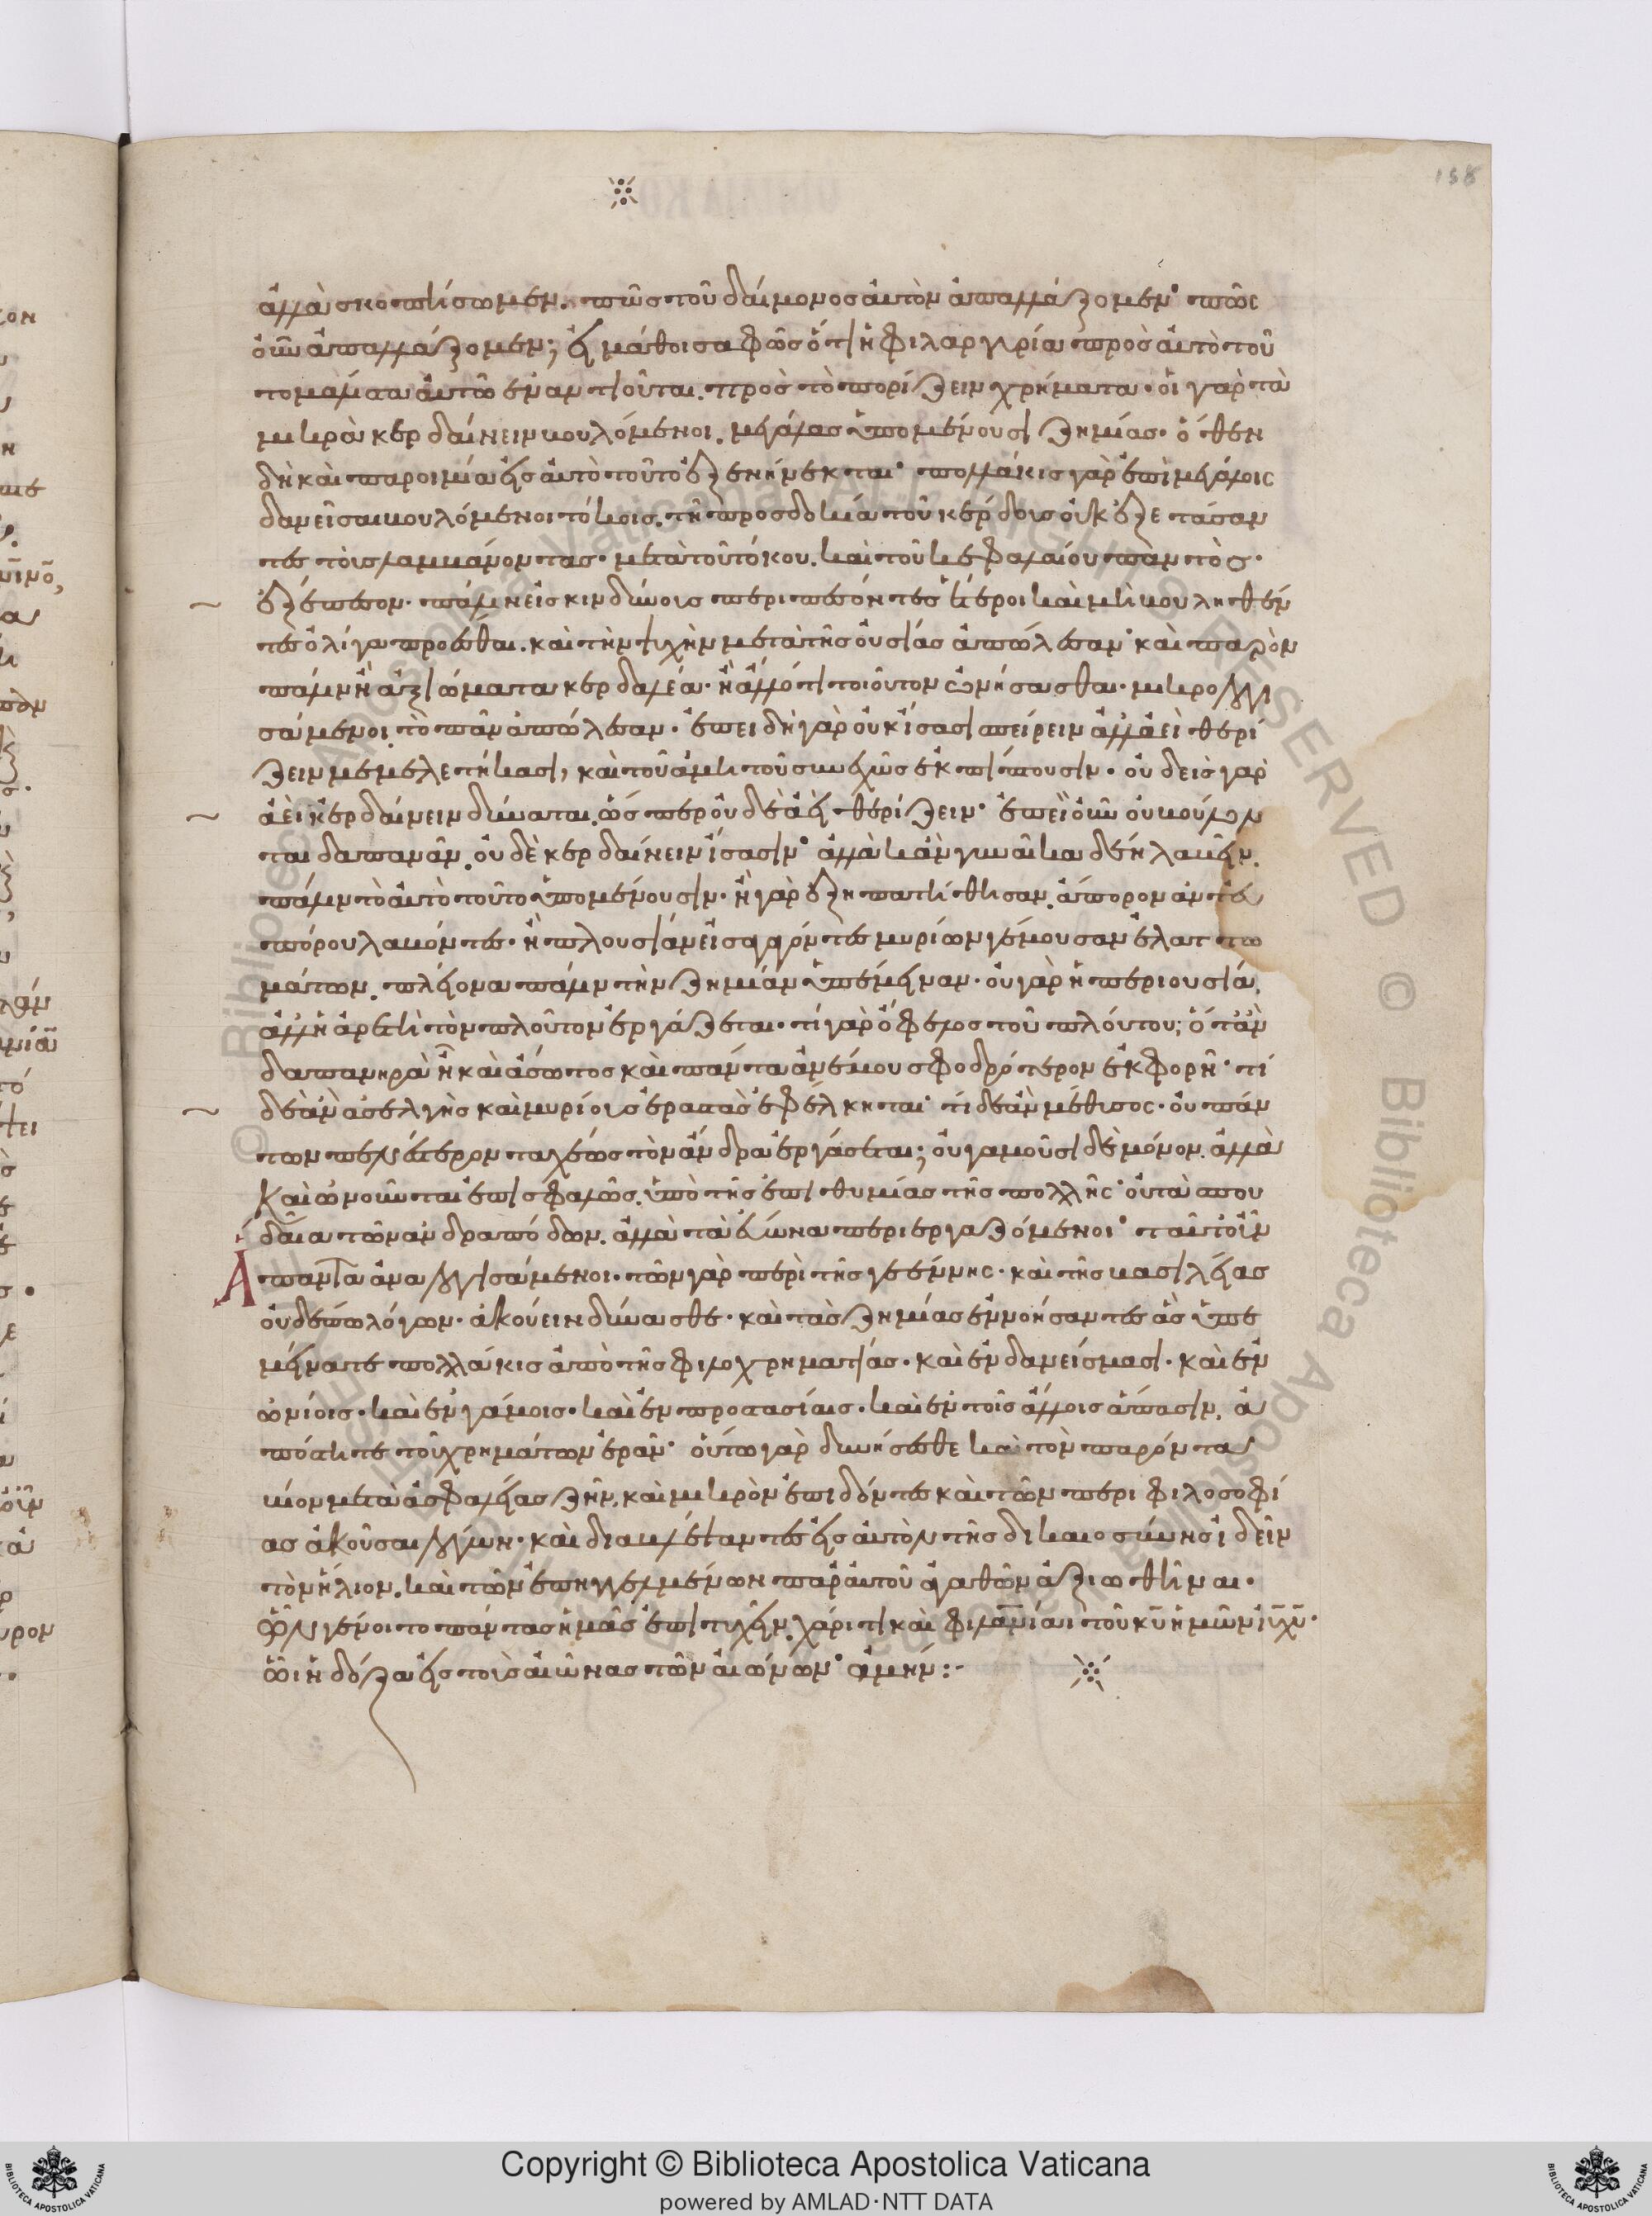 158
ἀλλὰ σκοπήσωμεν. πῶς τοῦ δαίμονος αὐτὸν ἀπαλλάξομεν· πῶς
οὖν ἀπαλλάξομεν; εἰ μάθοι σαφῶς ὅτι ἡ φιλαργυρία πρὸς αὐτὸ τοῦ
το μάλιστα αὐτῶ ἐναντιοῦται. πρὸς τὸ πορίζειν χρήματα· οἱ γὰρ τὰ
μικρὰ κερδαίνειν βουλόμενοι. μεγάλας ὑπομένουσι ζημίας· ὅθεν
δὴ καὶ παροιμία εἰς αὐτὸ τοῦτο ἐξενήνεκται· πολλάκις γὰρ ἐπὶ μεγάλοις
δανεῖσαι βουλόμενοι τόκοις. τῆ προσδοκία τοῦ κέρδους οὐκ ἐξετάσαν
τες τοὺς λαμβάνοντας· μετὰ τοῦ τόκου. καὶ τοῦ κεφαλαίου παντὸς·
ἐξέπεσον· πάλιν εἰς κινδύνους περιπεσόντες ἕτεροι καὶ μὴ βουληθέν
τες ὀλίγα προέσθαι. καὶ τὴν ψυχὴν μετὰ τῆς οὐσίας ἀπώλεσαν· καὶ παρὸν
πάλιν ἢ ἀξιώματα κερδαλέα· ἢ ἄλλό τι τοιοῦτον ὠνήσασθαι· μικρολογη
σάμενοι τὸ πᾶν ἀπώλεσαν· ἐπειδὴ γὰρ οὐκ ἴσασι σπείρειν ἀλλ' ἀεὶ θερί
ζειν μεμελετήκασι, καὶ τοῦ ἀμητοῦ συνεχῶς ἐκπίπτουσιν· οὐδεὶς γὰρ
ἀεὶ κερδαίνειν δύναται. ὥσπερ οὐδὲ ἀεὶ θερίζειν· ἐπεὶ οὖν οὐ βούλον
ται δαπανᾶν. οὐδὲ κερδαίνειν ἴσασιν· ἀλλὰ κἂν γυναῖκα δέη λαβεῖν.
πάλιν τὸ αὐτὸ τοῦτο ὑπομένουσιν· ἢ γὰρ ἐξηπατήθησαν. ἄπορον ἀντ' εὐ
πόρου λαβόντες· ἢ πλουσίαν εἰσαγαγόντες μυρίων γέμουσαν ἐλαττω
μάτων. πλείονα πάλιν τὴν ζημίαν ὑπέμειναν· οὐ γὰρ ἡ περιουσία,
ἀλλ' ἡ ἀρετὴ τὸν πλοῦτον ἐργάζεται· τί γὰρ ὄφελος τοῦ πλούτου; ὅταν
δαπανηρὰ ἦ καὶ ἄσωτος καὶ πάντα ἀνέμου σφοδρότερον ἐκφορῆ· τί
δὲ ἂν ἀσελγὴς καὶ μυρίους ἐραστὰς ἐφέλκηται· τί δὲ ἂν μέθυσος· οὐ πάν
των πενέστερον ταχέως τὸν ἄνδρα ἐργάσεται; οὐ γαμοῦσι δὲ μόνον. ἀλλὰ
καὶ ὠνοῦνται ἐπισφαλῶς. ὑπὸ τῆς ἐπιθυμίας τῆς πολλῆς· οὐ τὰ σπου
δαῖα τῶν ἀνδραπόδων. ἀλλὰ τὰ εὔωνα περιεργαζόμενοι· ταῦτ' οὖν
Ἅπαντα ἀναλογισάμενοι· τῶν γὰρ περὶ τῆς γεέννης· καὶ τῆς βασιλείας
οὐδέπω λόγων· ἀκούειν δύνασθε· καὶ τὰς ζημίας ἐννοήσαντες ἃς ὑπε
μείνατε πολλάκις ἀπὸ τῆς φιλοχρηματίας· καὶ ἐν δανείσμασι· καὶ ἐν
ὠνίοις· καὶ ἐν γάμοις· καὶ ἐν προστασίαις· καὶ ἐν τοῖς ἄλλοις ἅπασιν. ἀ
πόστητε τοῦ χρημάτων ἐρᾶν· οὕτω γὰρ δυνήσεσθε καὶ τὸν παρόντα
βίον μετὰ ἀσφαλείας ζῆν. καὶ μικρὸν ἐπιδόντες καὶ τῶν περὶ φιλοσοφί
ας ἀκοῦσαι λόγων· καὶ διαβλέψαντες εἰς αὐτὸν τῆς δικαιοσύνης ἰδεῖν
τὸν ἥλιον. καὶ τῶν ἐπηγγελμένων παρ' αὐτοῦ ἀγαθῶν ἀξιωθῆναι·
ὧν γένοιτο πάντας ἡμᾶς ἐπιτυχεῖν. χάριτι καὶ φιλανίαι τοῦ κυ ἡμῶν ιυ χυ·
ὧι ἡ δόξα εἰς τοὺς αἰῶνας τῶν αἰώνων· ἀμήν:-
Copyright © Biblioteca Apostolica Vaticana
powered by AMLAD·NTT DATA